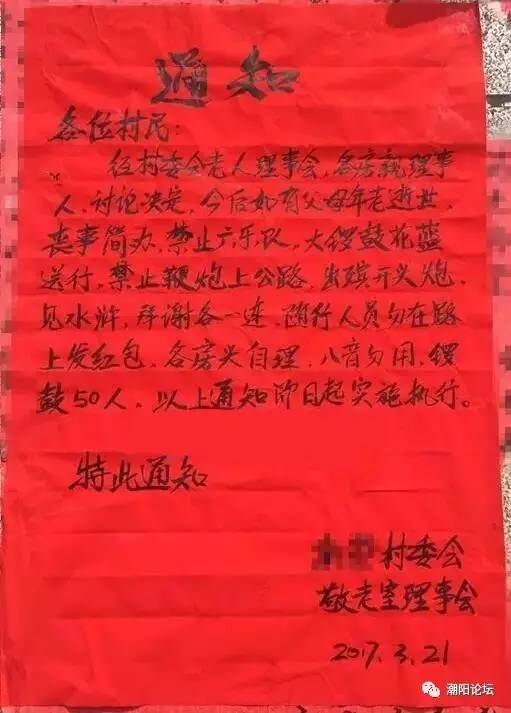 通知
各位村民:
伍村委会老人理事会,各房親理事
人,讨论决定,今后如有父母年老逝世,
丧事简办,禁止六乐队,大锣鼓花蓝
送行,禁止鞭炮上公路,出殡开头炮,
见水浒,拜谢各一连,随行人员勿在路
上发红包,各房头自理,八音勿用,锣
鼓50人,以上通知即日起实施执行。
特此通知
村委会
敬老室理事会
2017.3.21
潮阳论坛